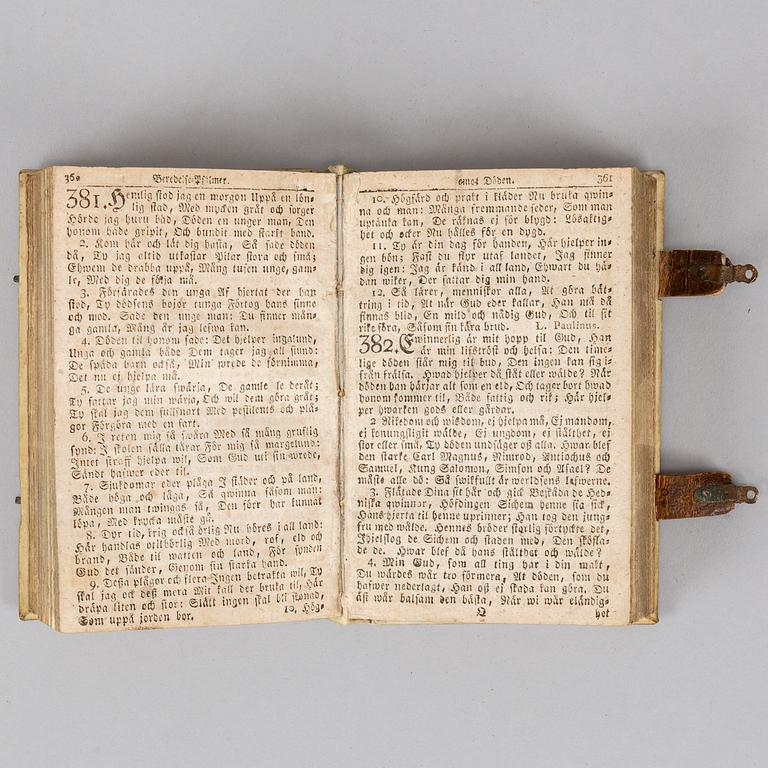 360 Beredelse-Psalmer.
381. Hemlig stod jag en morgon Uppå en lön-
lig stad, Med mycken gråt och sorger
Hörde jag huru bad, Döden en unger man, Den
honom hade gripit, Och bundit med starkt band.
2. Kom här och låt dig hasta, Så sade döden
då, Ty jag altid utkastar Pilar stora och små;
Ehwem de drabba uppå, Mång tusen unge, gam-
le, Med dig de följa må.
3. Förfärades den unga Af hjertat der han
stod, Ty dödsens bojor tunga Förtog hans sinne
och mod. Sade den unge man: Du finner mån-
ga gamla, Mång är jag lefwa kan.
4. Döden til honom sade: Det hjelper ingalund,
Unga och gamla både Dem tager jag all stund:
De späda barn också, Min wrede de förnimma,
Det nu ej hjelpa må.
5. De unge lära swärja, De gamle le deråt;
Ty fattar jag min wärja, Och wil dem göra gråt;
Ty skal jag dem fullsnart Med pestilents och plå-
gor Förgöra med en fart.
6. I reten mig så swåra Med så mång gruflig
synd: I skolen fälla tårar För mig så margelund:
Intet straff hjelpa wil, Som Gud ut sin wrede,
Sändt hafwer eder til.
7. Sjukdomar eder plåga I städer och på land,
Både höga och låga, Så qwinna såsom man:
Mången man twingas så, Den förr har kunnat
löpa, Med krycka måste gå.
8. Dyr tid, krig också örlig Nu höres i all land:
Här handlas otilbörlig Med mord, rof, eld och
brand, Både til watten och land, För synden
Gud det sänder, Genom sin starka hand.
9. Deßa plågor och flera Ingen betrakta wil, Ty
skal jag ock deß mera Mit kall der bruka til, Här
dräpa liten och stor: Slätt ingen skal bli skonad,
Som uppå jorden bor. 10. Hög-
emot Döden. 361
10. Högfärd och prakt i kläder Nu bruka qwin-
na och man: Många fremmande seder, Som man
uptänka kan, De räknas ej för blygd: Lösaktig-
het och ocker Nu hålles för en dygd.
11. Ty är din dag för handen, Här hjelper in-
gen bön; Fast du flyr utaf landet, Jag finner
dig igen: Jag är känd i all land, Ehwart du hä-
dan wiker, Der fattar dig min hand.
12. Så lärer, menniskor alla, At göra bät-
tring i tid, At när Gud eder kallar, Han må då
finnas blid, En mild och nådig Gud, Och til sit
rike föra, Såsom sin kära brud. L. Paulinus.
382. Ewinnerlig är mit hopp til Gud, Han
är min lifströst och helsa: Den time-
lige döden står mig til bud, Den ingen kan sig i-
från frälsa. Hwad hjelper då stät eller wälde? När
döden han härjar alt som en eld, Och tager bort hwad
honom kommer til, Både fattig och rik; Här hjel-
per hwarken gods eller gårdar.
2 Rikedom och wisdom, ej hjelpa må, Ej mandom,
ej konungsligit wälde, Ej ungdom, ej stålthet, ej
stor eller små, Ty döden undsäger oß alla. Hwar blef
den starke Carl Magnus, Nimrod, Antiochus och
Samuel, Kung Salomon, Simson och Asael? De
måste alle dö: Så swikfullt är werldsens lefwerne.
3. Flätade Dina sit hår och gick Beskåda de Hed-
niska qwinnor, Höfdingen Sichem henne sta fick,
Hans hjerta til henne uprinner; Han tog den jung-
fru med wälde. Hennes bröder sigrlig förtyckte det,
Ihjelslog de Sichem och staden med, Den sköfla-
de de. Hwar blef då hans stålthet och wälde?
4. Min Gud, som all ting har i din makt,
Du wärdes wår tro förmera, At döden, som du
hafwer nederlagt, Han oß ej skada kan göra. Du
äst wår balsam den bästa, När wi wår elendig-
Q het